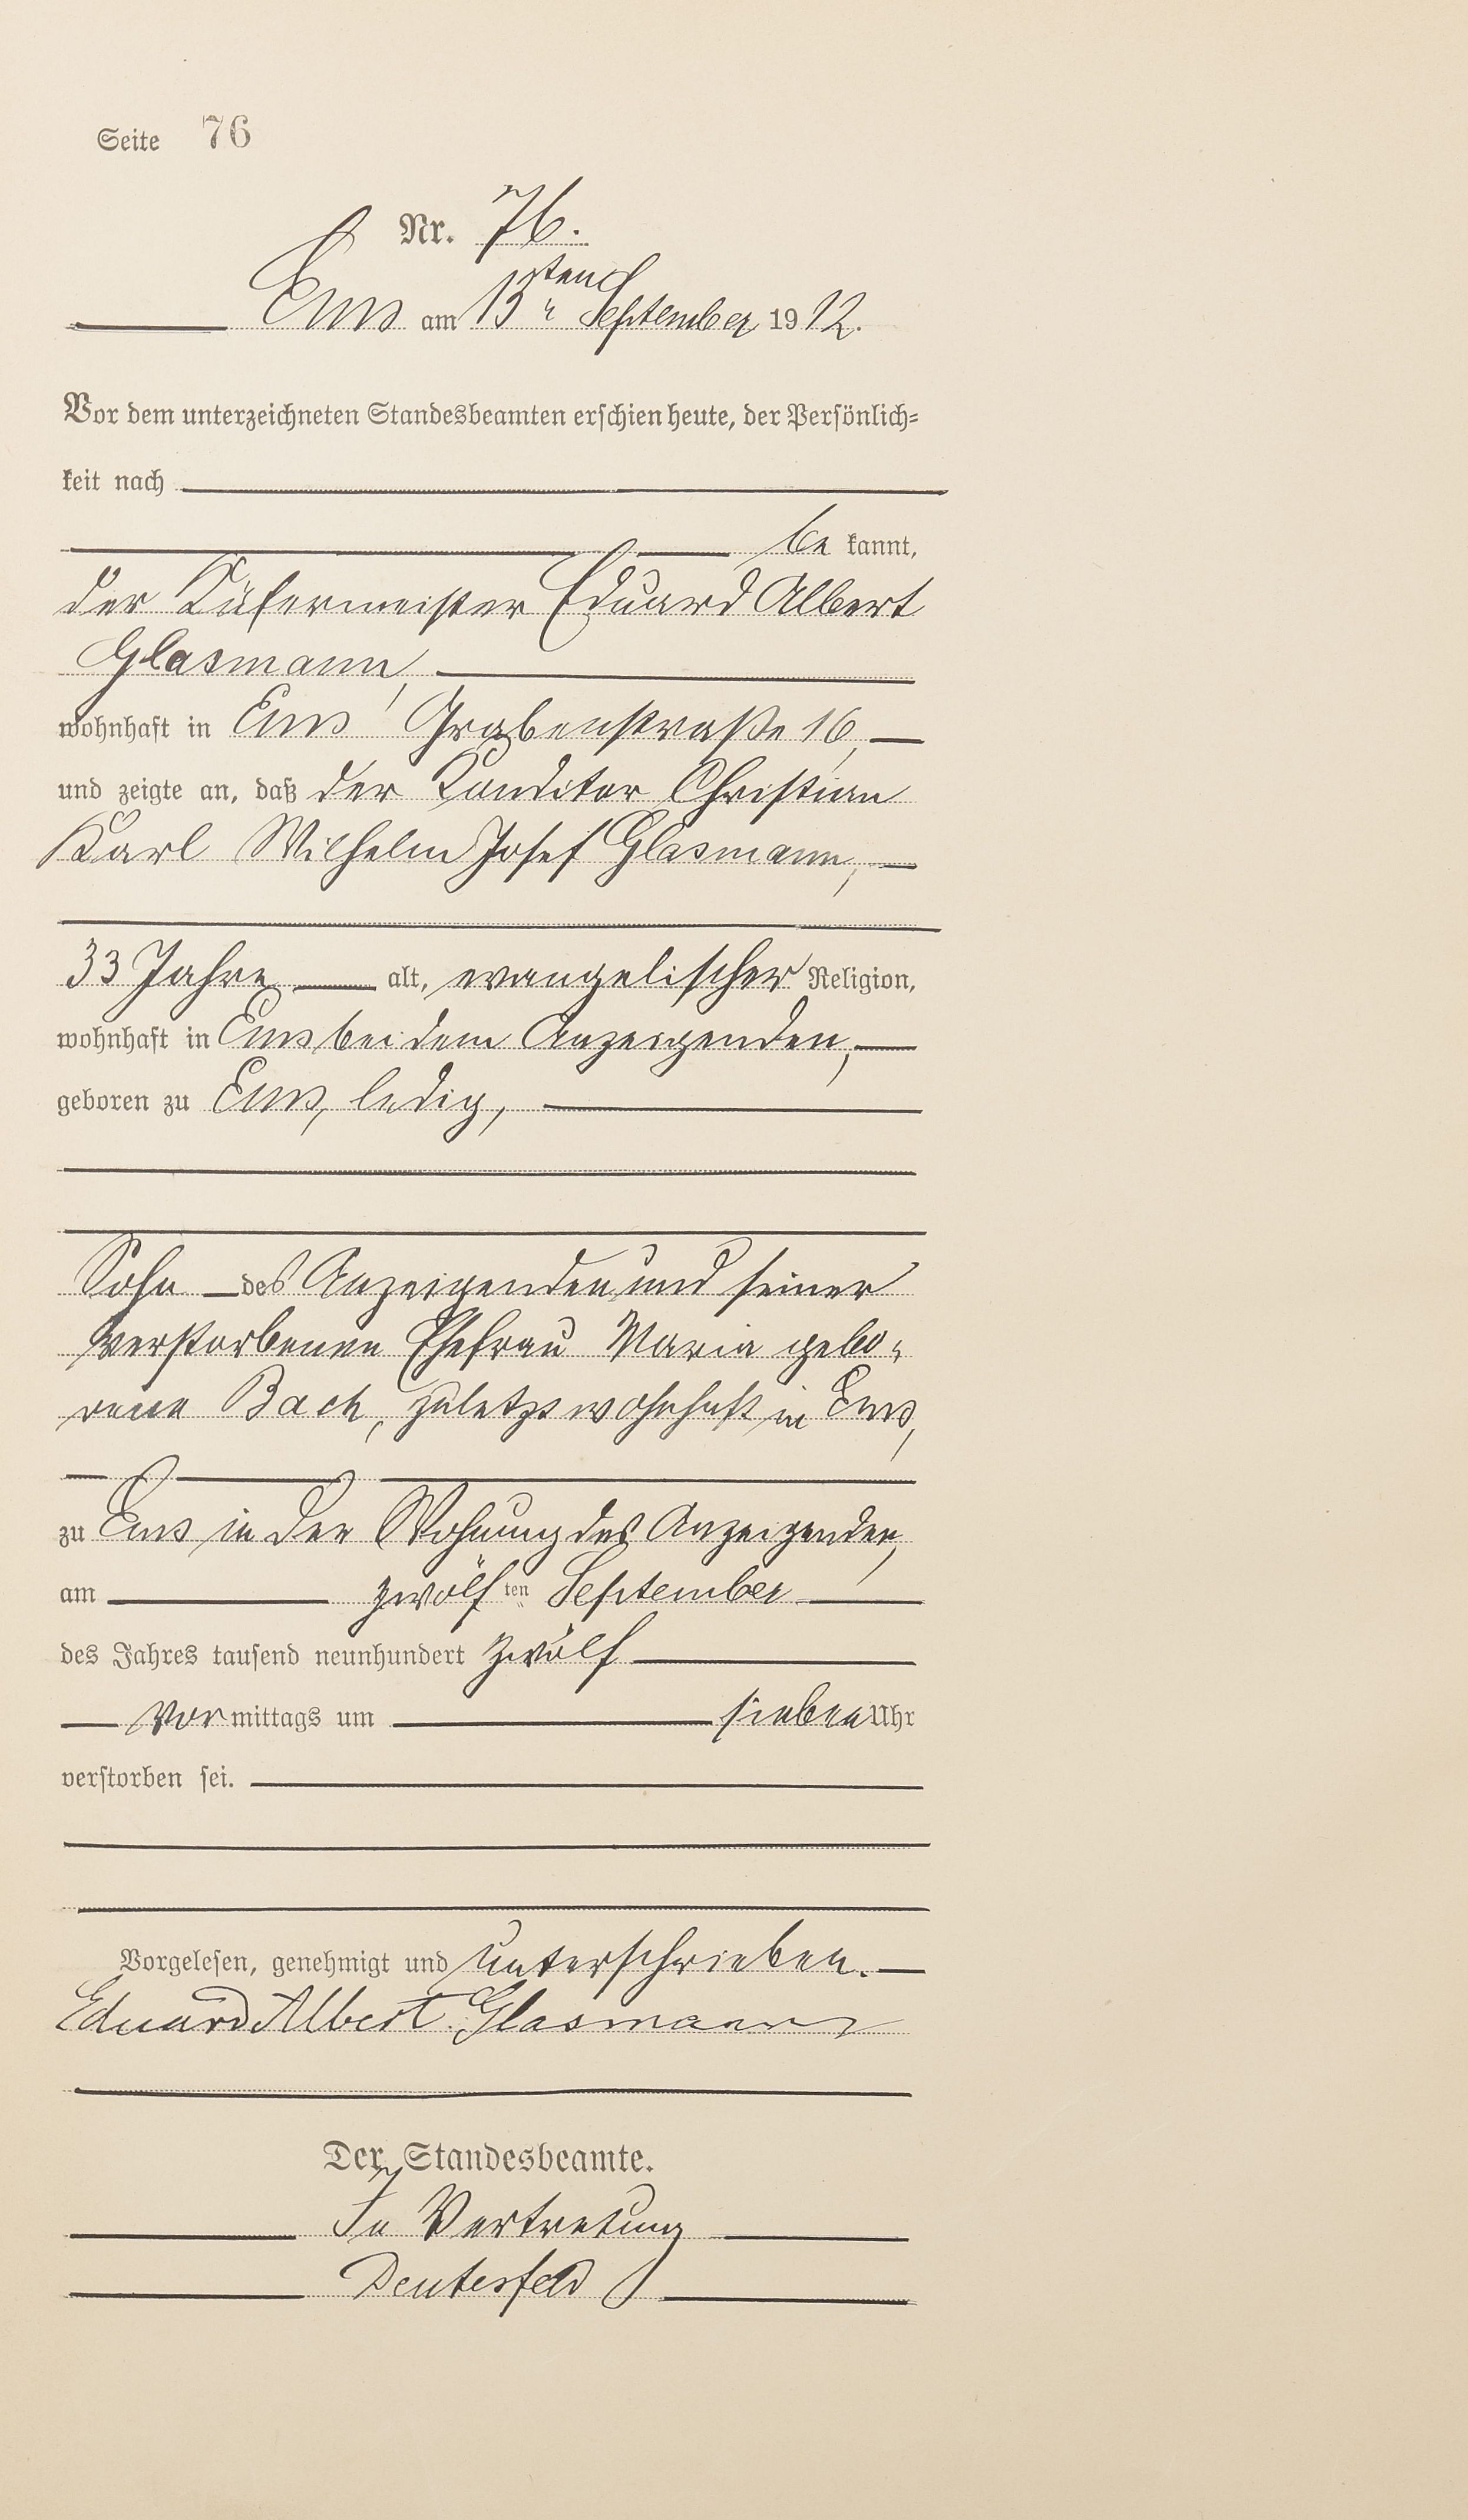 Seite 76
Nr. 76.
Ems am 13ten September 1912.
Vor dem unterzeichneten Standesbeamten erschien heute, der Persönlich=
keit nach
be kannt,
der Küfermeister Eduard Albert
Glasmann,
wohnhaft in Ems Grabenstraße 16,
und zeigte an, daß der Konditor Christian
Karl Wilhelm Josef Glasmann,
33 Jahre alt, evangelischer Religion,
wohnhaft in Ems bei dem Anzeigenden,
geboren zu Ems, ledig,
Sohn des Anzeigenden und seiner
verstorbenen Ehefrau Maria gebo-
rene Bach, zuletzt wohnhaft in Ems,
zu Ems in der Wohnung des Anzeigenden,
am zwölf ten September
des Jahres tausend neunhundert zwölf
vor mittags um sieben Uhr
verstorben sei.
Vorgelesen, genehmigt und unterschrieben.
Eduard Albert Glasmann
Der Standesbeamte.
In Vertretung
Deutesfeld